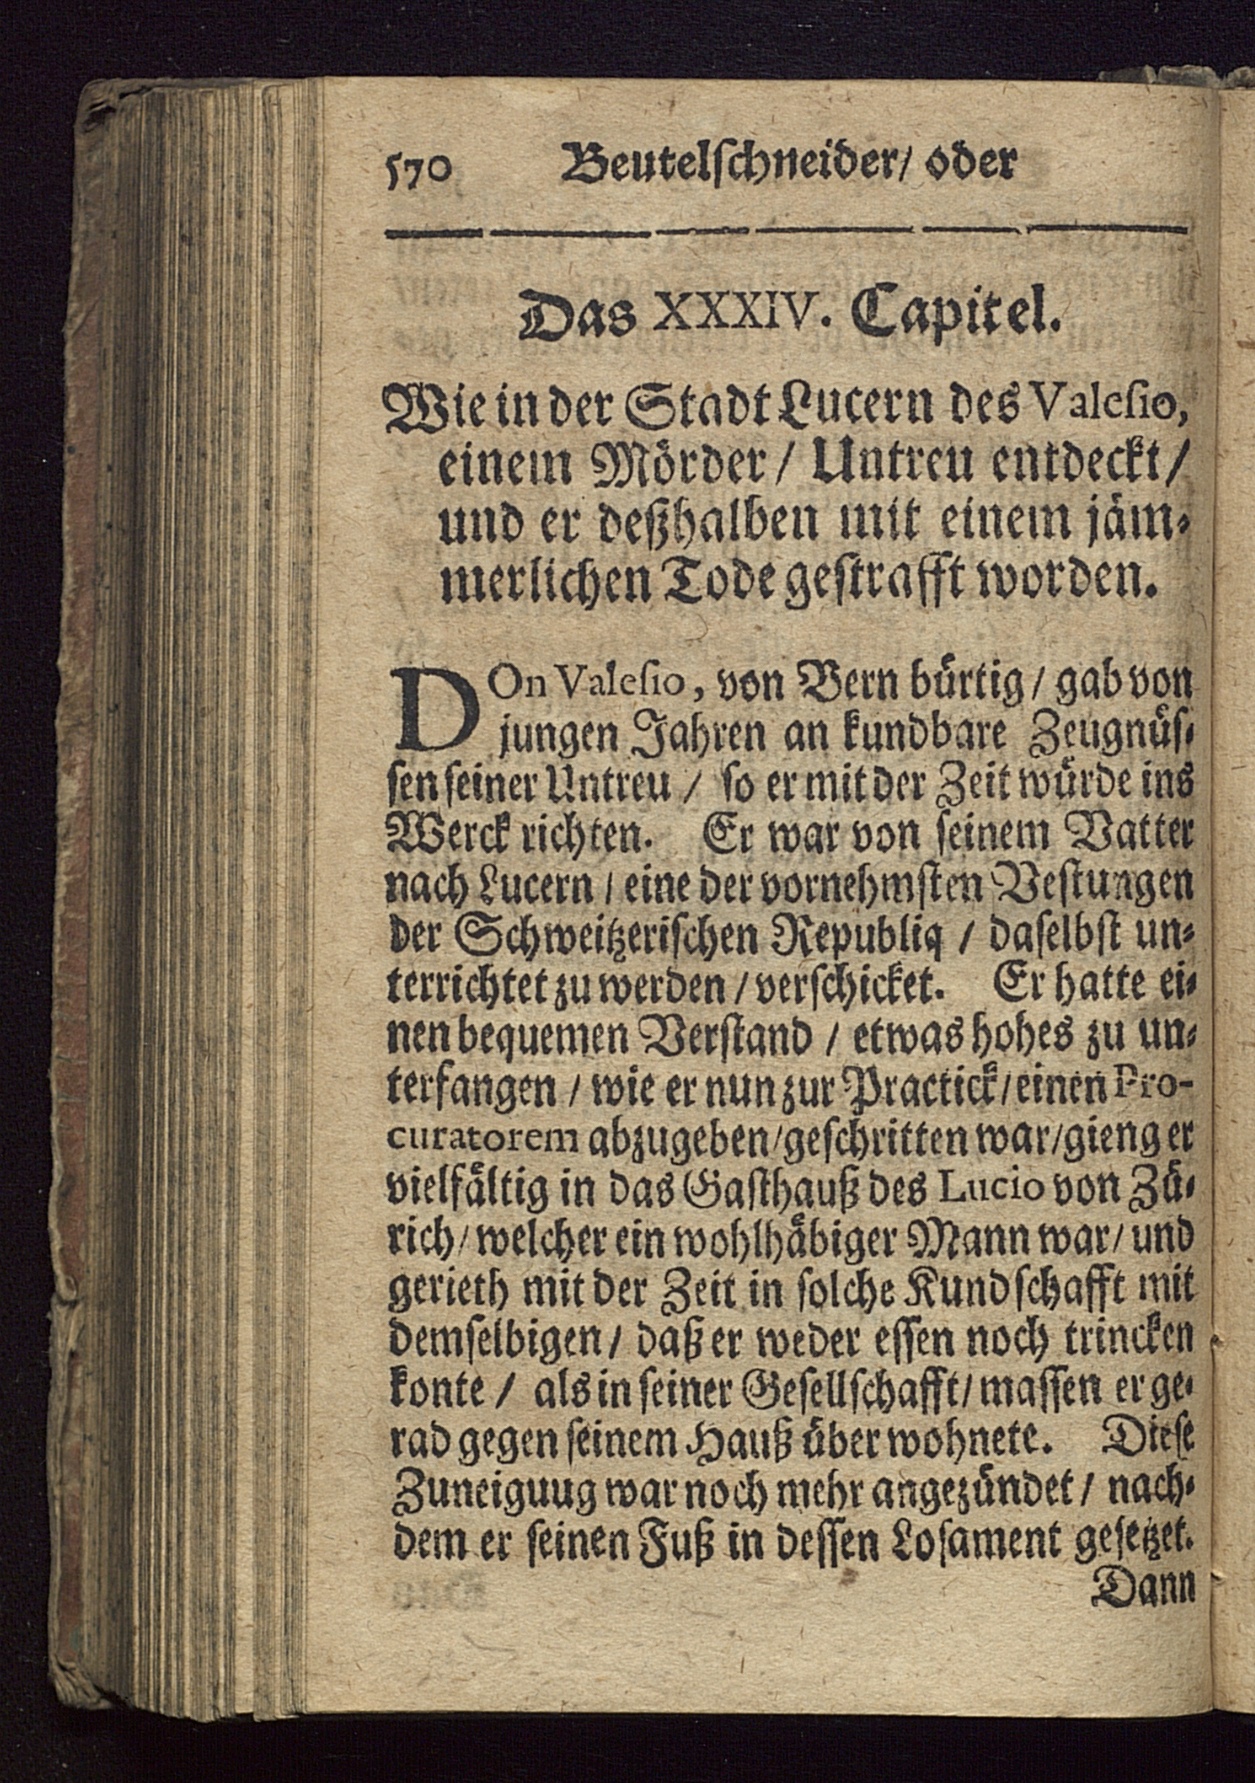 570 Beutelſchneider/ oder
Das XXXIV. Capitel.
Wie in der Stadt Lucern des Valeſio,
einem Mörder / Untreu entdeckt /
und er deßhalben mit einem jäm-
merlichen Tode geſtrafft worden.
DOn Valeſio, von Bern bürtig / gab von
jungen Jahren an kundbare Zeugnüſ-
ſen ſeiner Untreu / ſo er mit der Zeit würde ins
Werck richten. Er war von ſeinem Vatter
nach Lucern / eine der vornehmſten Veſtungen
der Schweitzeriſchen Republiq / daſelbſt un-
terrichtet zu werden / verſchicket. Er hatte ei-
nen bequemen Verſtand / etwas hohes zu un-
terfangen / wie er nun zur Practick / einen Pro-
curatorem abzugeben / geſchritten war / gieng er
vielfältig in das Gaſthauß des Lucio von Zü-
rich / welcher ein wohlhäbiger Mann war / und
gerieth mit der Zeit in ſolche Kundſchafft mit
demſelbigen / daß er weder eſſen noch trincken
konte / als in ſeiner Geſellſchafft / maſſen er ge-
rad gegen ſeinem Hauß über wohnete. Dieſe
Zuneiguug war noch mehr angezündet / nach-
dem er ſeinen Fuß in deſſen Loſament geſetzet.
Dann